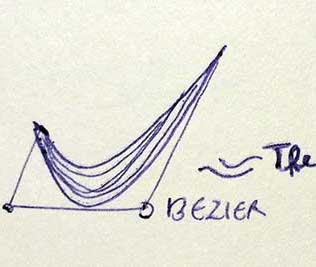 The
BEZIER